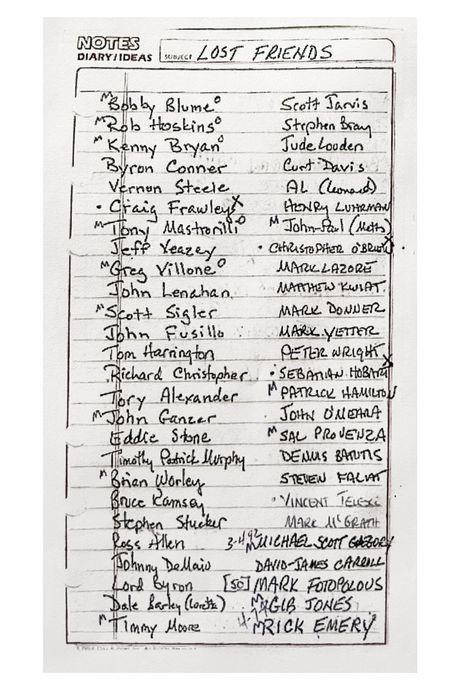 NOTES
DIARY/IDEAS
SUBJECT LOST FRIENDS
M Bobby Blume o
M Rob Hoskins o
M Kenny Bryan o
Byron Conner
Vernon Steele
• Craig Frawley X
M Tony Mastorilli o
Jeff Veazey
M Greg Villone o
John Lenahan
M Scott Sigler
John Fusillo
Tom Harrington
Richard Christopher
Tory Alexander
M John Ganzer
Eddie Stone
Timothy Patrick Murphy
M Brian Worley
Bruce Ramsey
Stephen Stucker
Ross Allen
Johnny DeMaio
Lord Byron
Dale Barley (Loretta)
M Timmy Moore
Scott Jarvis
Stephen Bray
Jude Louden
Curt Davis
AL (Leonard)
HENRY LUHRMAN
M John-Paul
• CHRISTOPHER O'BRIEN X
MARK LAZORE
MATTHEW KWIAT
MARK DONNER
MARK VETTER
PETER WRIGHT
• SEBATIAN HOBART X
M PATRICK HAMILTON
JOHN O'MEARA
M SAL PROVENZA
DENNIS BATUTIS
STEVEN FALAT
• VINCENT
MARK McGRATH
3-4-92 M MICHAEL SCOTT GREGORY
DAVID-JAMES CARROLL
[50] MARK FOTOPOLOUS
M GIB JONES
M RICK EMERY